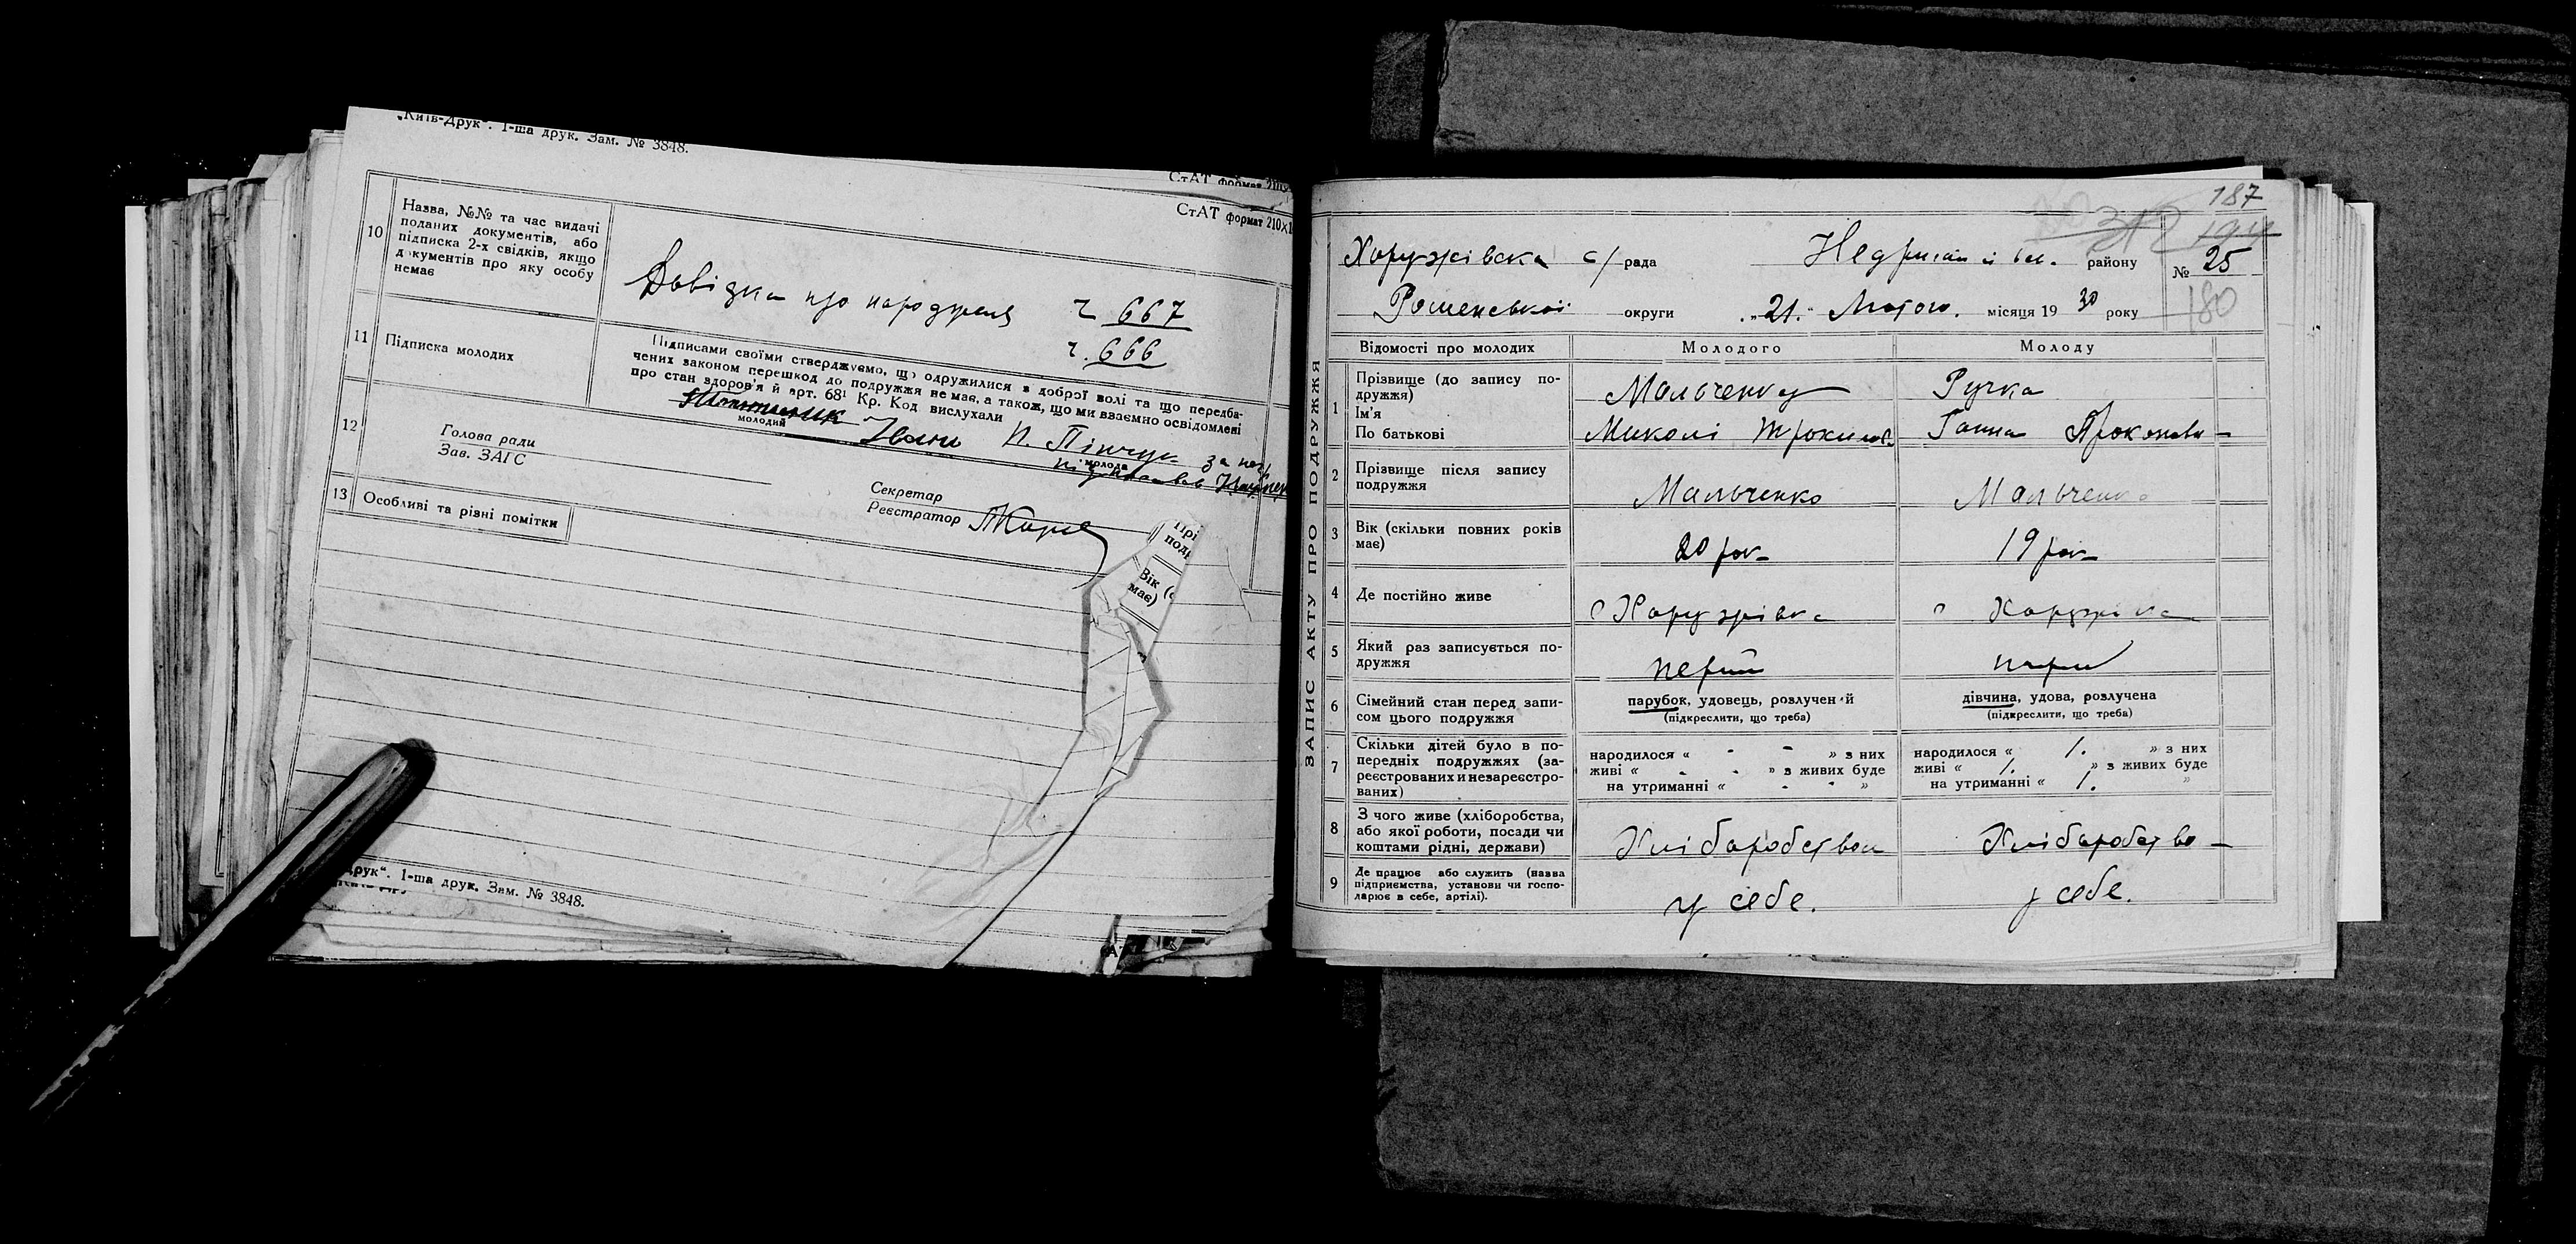 „Київ-Друк“. 1-ша друк. Зам. № 3848.
СтАТ формат 210×
СтАТ формат 210×1
10
Назва, №№ та час видачі
поданих документів, або
підписка 2-х свідків, якщо
документів про яку особу
немає
Довідка про народження ч 667
ч. 666
11
Підписка молодих
Підписами своїми стверджуємо, що одружилися з доброї волі та що передба-
чених законом перешкод до подружжя не має, а також, що ми взаємно освідомлені
про стан здоров'я й арт. 68¹ Кр. Код вислухали
Іван И. Пінчук за неї
молодий
молода
підписався
12
Голова ради
Зав. ЗАГС
Секретар
Реєстратор
13
Особливі та різні помітки
Прі
подр
Вік (с
має)
друк“. 1-ша друк. Зам. № 3848.
187
312
Хоружівска с/ рада
Недригайлівськ. району
№ 25
Роменської округи „21.“ Лютого. місяця 19 30 року
180
ЗАПИС АКТУ ПРО ПОДРУЖЖЯ
Відомості про молодих
Молодого
Молоду
1
Прізвище (до запису по-
дружжя)
Ім'я
По батькові
Мальченко
Миколі Трохимов
Ручка
Ганна Прокопови
2
Прізвище після запису
подружжя
Мальченко
Мальченко
3
Вік (скільки повних років
має)
20 рок
19 рок
4
Де постійно живе
с Хоружівка
с Хоружівка
5
Який раз записується по-
дружжя
перший
перши
6
Сімейний стан перед запи-
сом цього подружжя
парубок, удовець, розлучений
(підкреслити, що треба)
дівчина, удова, розлучена
(підкреслити, що треба)
7
Скільки дітей було в по-
передніх подружжях (за-
реєстрованих и незареєстро-
ваних)
народилося « - - » з них
живі « - - » з живих буде
на утриманні « - - »
народилося « 1. » з них
живі « 1. » з живих буде
на утриманні « 1. »
8
З чого живе (хліборобства,
або якої роботи, посади чи
коштами рідні, держави)
Хліборобством
Хліборобство
9
Де працює або служить (назва
підприємства, установи чи госпо-
дарює в себе, артілі).
у себе.
у себе.